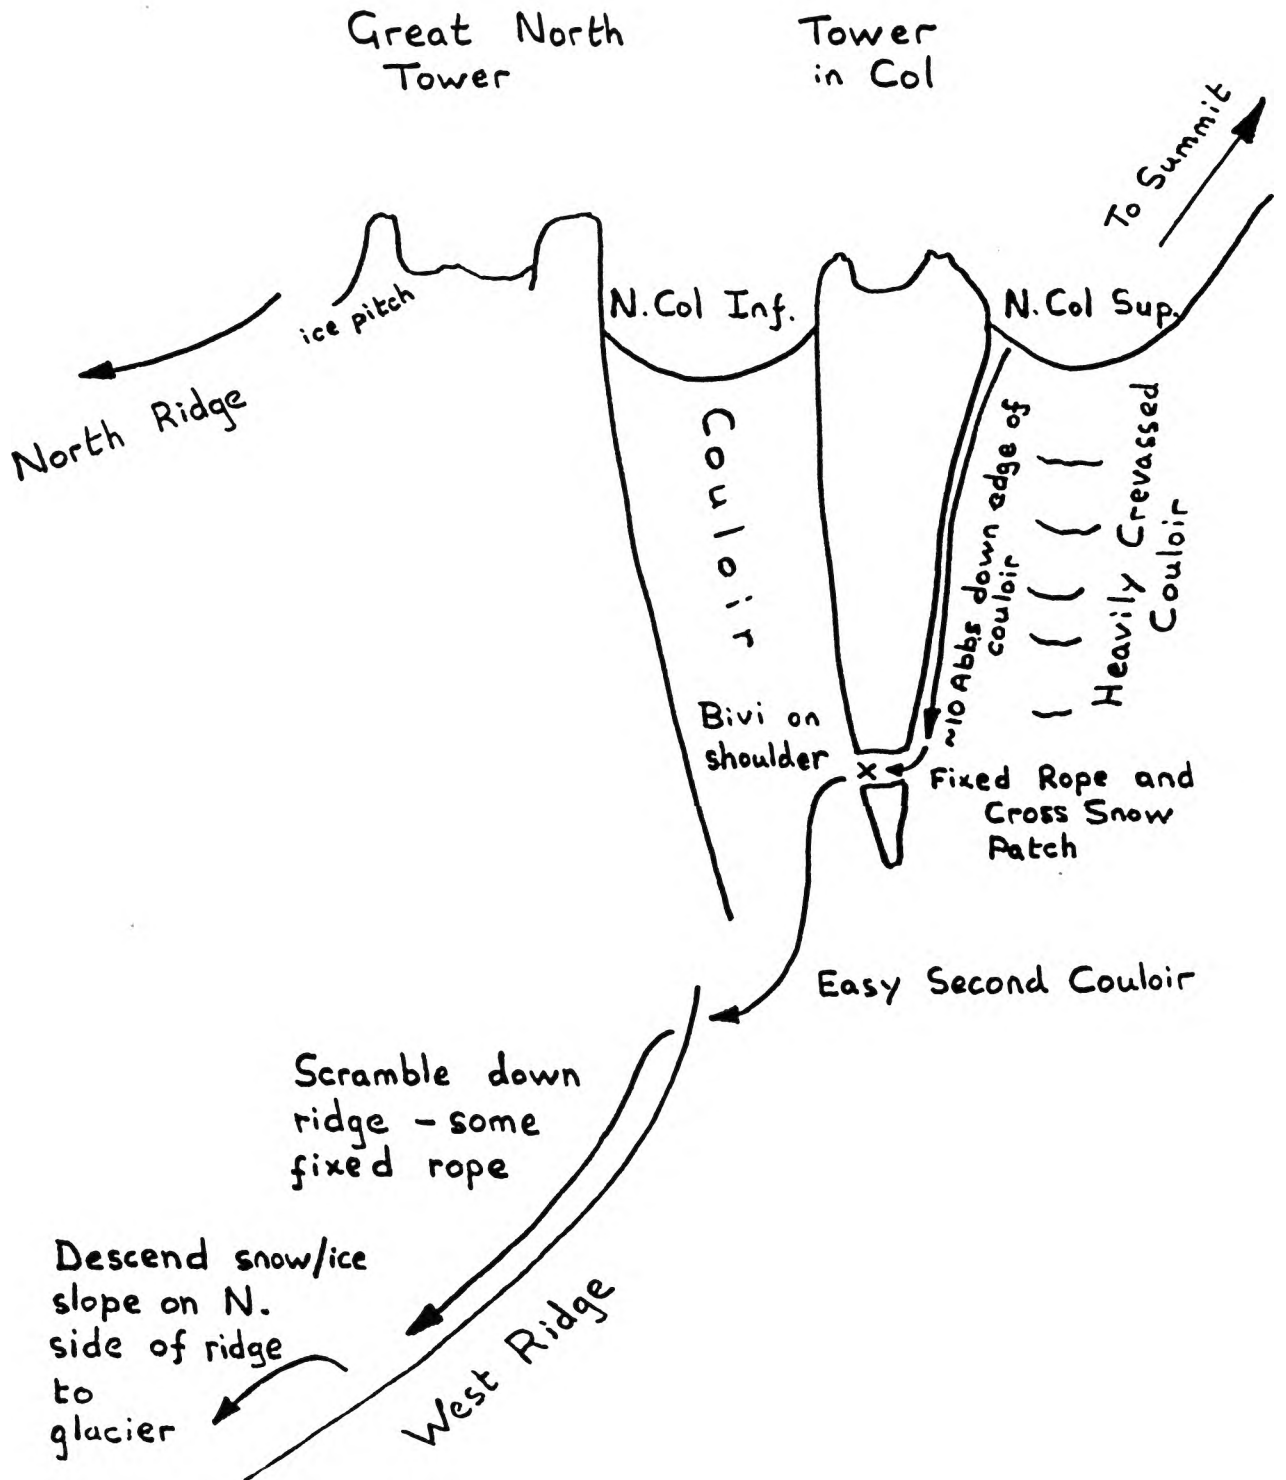 Great North
Tower
Tower
in Col
To Summit
ice pitch
N. Col Inf.
N. Col Sup.
North Ridge
Couloir
~10 Abbs down edge of
couloir
Heavily Crevassed
Couloir
Bivi on
shoulder
x
Fixed Rope and
Cross Snow
Patch
Easy Second Couloir
Scramble down
ridge – some
fixed rope
Descend snow/ice
slope on N.
side of ridge
to
glacier
West Ridge